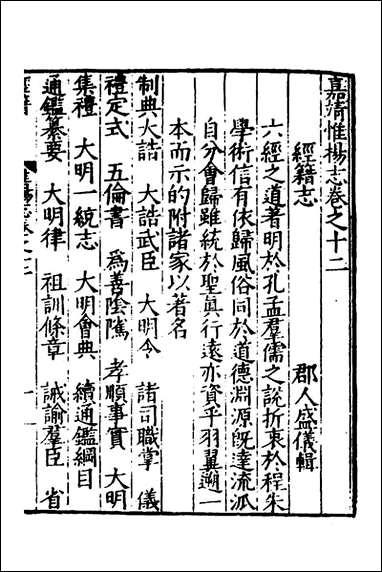 嘉靖惟揚志卷之十二
經籍志　郡人盛儀輯
六經之道著明於孔孟羣儒之說折衷於程朱
學術信有依歸風俗同於道德淵源旣達流泒
自分會歸雖統於聖眞行遠亦資乎羽翼遡一
本而示的附諸家以著名
制典大誥　大誥武臣　大明令　諸司職掌　儀
禮定式　五倫書　爲善陰隲　孝順事實　大明
集禮　大明一統志　大明會典　續通鑑綱目
通鑑纂要　大明律　祖訓條章　誡諭羣臣　省